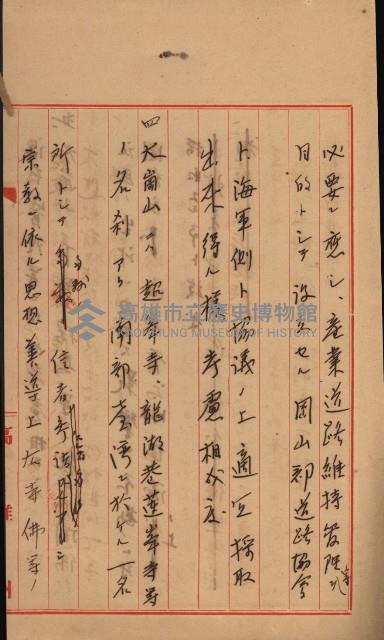 必要ニ應シ、産業道路維持發陞ヲ
目的トシテ設立セル岡山郡道路協會
ト海軍側ト協議ノ上適宜採取
出來得ル様考慮相成度
四 大崗山ハ超峯寺、龍湖巷蓮峯寺等
ノ名刹アリ南部臺灣ニ於ケル一名
所トシテ 信者参詣
宗教ニ依ル思想善導上左等佛等ノ
高雄市立歷史博物館
KAOHSIUNG MUSEUM OF HISTORY
高雄